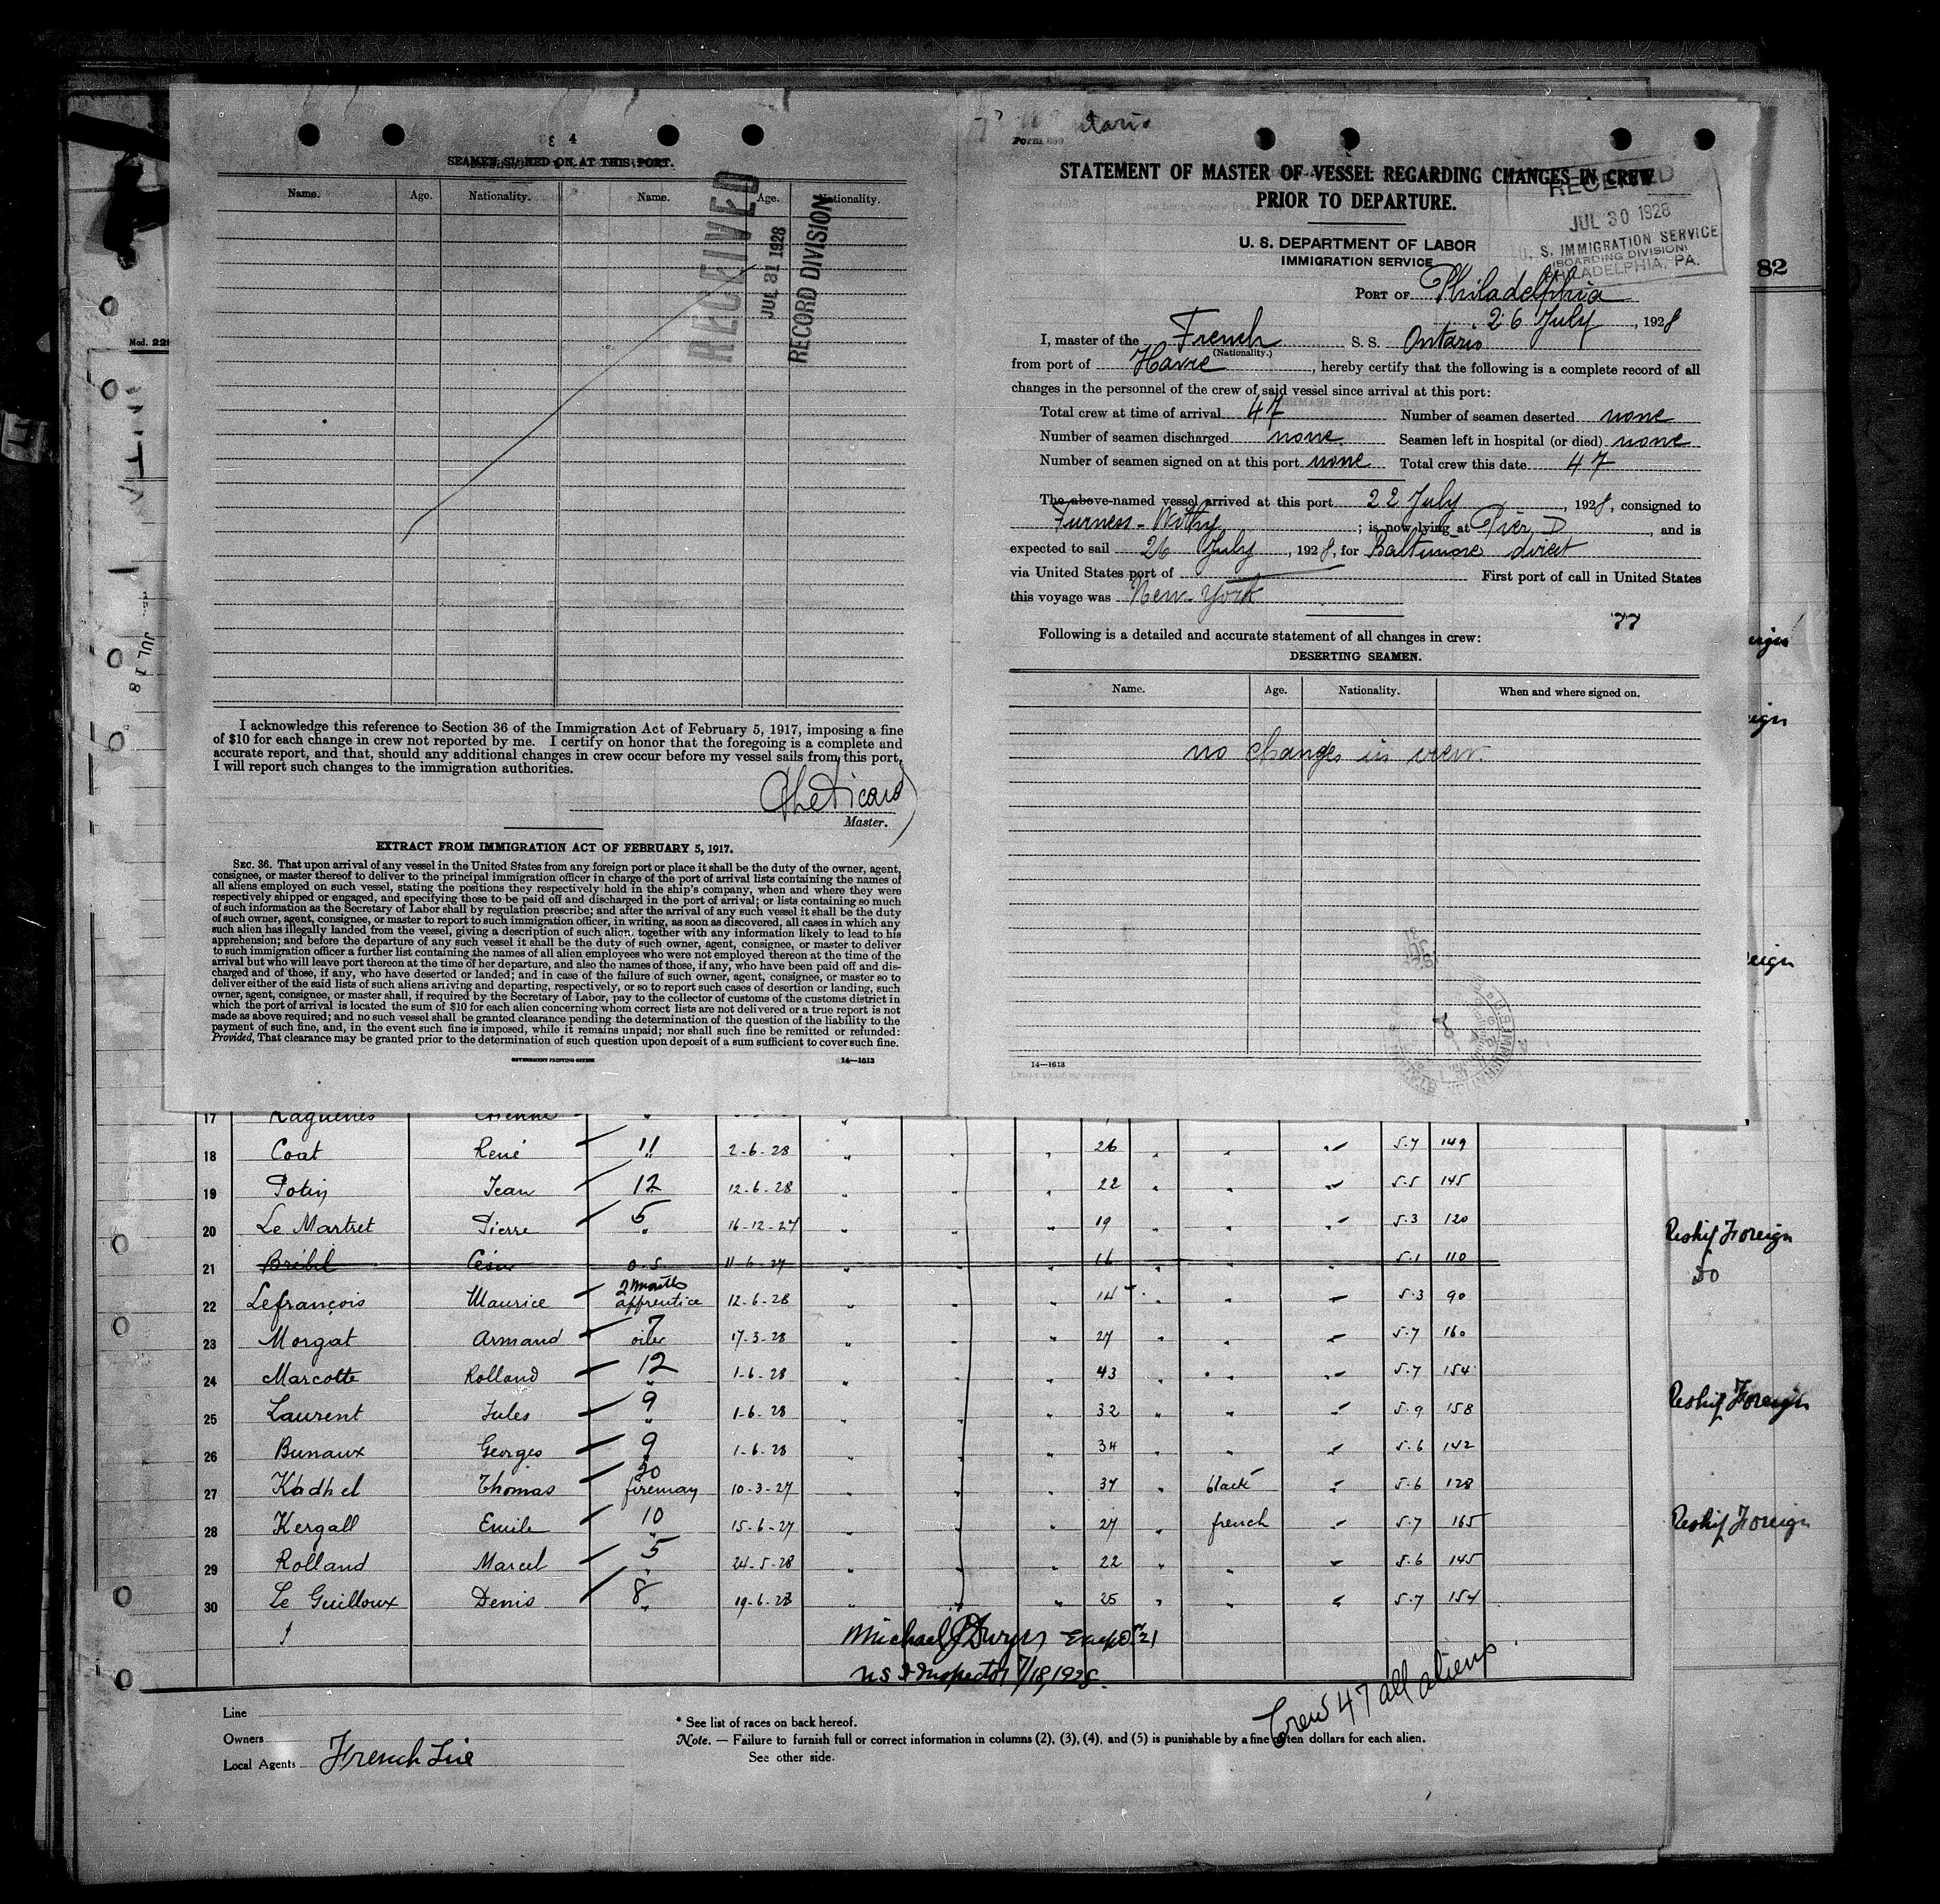 SEAMEN SIGNED ON AT THIS PORT.
Name. Age. Nationality. Name. Age. Nationality.
RECEIVED
JUL 31 1928
RECORD DIVISION
I acknowledge this reference to Section 36 of the Immigration Act of February 5, 1917, imposing a fine
of $10 for each change in crew not reported by me. I certify on honor that the foregoing is a complete and
accurate report, and that, should any additional changes in crew occur before my vessel sails from this port,
I will report such changes to the immigration authorities.
Master.
EXTRACT FROM IMMIGRATION ACT OF FEBRUARY 5, 1917.
SEC. 36. That upon arrival of any vessel in the United States from any foreign port or place it shall be the duty of the owner, agent,
consignee, or master thereof to deliver to the principal immigration officer in charge of the port of arrival lists containing the names of
all aliens employed on such vessel, stating the positions they respectively hold in the ship's company, when and where they were
respectively shipped or engaged, and specifying those to be paid off and discharged in the port of arrival; or lists containing so much
of such information as the Secretary of Labor shall by regulation prescribe; and after the arrival of any such vessel it shall be the duty
of such owner, agent, consignee, or master to report to such immigration officer, in writing, as soon as discovered, all cases in which any
such alien has illegally landed from the vessel, giving a description of such alien, together with any information likely to lead to his
apprehension; and before the departure of any such vessel it shall be the duty of such owner, agent, consignee, or master to deliver
to such immigration officer a further list containing the names of all alien employees who were not employed thereon at the time of the
arrival but who will leave port thereon at the time of her departure, and also the names of those, if any, who have been paid off and dis-
charged and of those, if any, who have deserted or landed; and in case of the failure of such owner, agent, consignee, or master so to
deliver either of the said lists of such aliens arriving and departing, respectively, or so to report such cases of desertion or landing, such
owner, agent, consignee, or master shall, if required by the Secretary of Labor, pay to the collector of customs of the customs district in
which the port of arrival is located the sum of $10 for each alien concerning whom correct lists are not delivered or a true report is not
made as above required; and no such vessel shall be granted clearance pending the determination of the question of the liability to the
payment of such fine, and, in the event such fine is imposed, while it remains unpaid; nor shall such fine be remitted or refunded:
Provided, That clearance may be granted prior to the determination of such question upon deposit of a sum sufficient to cover such fine.
GOVERNMENT PRINTING OFFICE 14—1613
STATEMENT OF MASTER OF VESSEL REGARDING CHANGES IN CREW
PRIOR TO DEPARTURE.
RECEIVED
JUL 30 1928
U. S. IMMIGRATION SERVICE
(BOARDING DIVISION)
PHILADELPHIA, PA.
U. S. DEPARTMENT OF LABOR
IMMIGRATION SERVICE
PORT OF Philadelphia
26 July, 1928
I, master of the French S. S. Ontario
(Nationality.)
from port of Havre, hereby certify that the following is a complete record of all
changes in the personnel of the crew of said vessel since arrival at this port:
Total crew at time of arrival 47 Number of seamen deserted none
Number of seamen discharged none. Seamen left in hospital (or died) none
Number of seamen signed on at this port none Total crew this date 47
The above-named vessel arrived at this port 22 July, 1928, consigned to
Furness-Withy; is now lying at Pier D, and is
expected to sail 26 July, 1928, for Baltimore direct
via United States port of First port of call in United States
this voyage was New-York
77
Following is a detailed and accurate statement of all changes in crew:
DESERTING SEAMEN.
Name. Age. Nationality. When and where signed on.
no changes in crew.
14—1613
82
Mod. 22
JUL 18
17 Raguenes Etienne
18 Coat René 11 2-6-28 " " " 26 " " " 5.7 149
19 Potin Jean 12 12-6-28 " " " 22 " " " 5.5 145
20 Le Martret Pierre 5 16-12-27 " " " 19 " " " 5.3 120
21 Brébil César o.s. 11-6-27 " " " 16 " " " 5.1 110
22 Lefrançois Maurice 2 months apprentice 12-6-28 " " " 15 " " " 5.3 90
23 Morgat Armand 7 oiler 17-3-28 " " " 27 " " " 5.7 160
24 Marcotte Rolland 12 " 1-6-28 " " " 43 " " " 5.7 154
25 Laurent Jules 9 " 1-6-28 " " " 32 " " " 5.9 158
26 Bunaux Georges 9 " 1-6-28 " " " 34 " " " 5.6 142
27 Kadhel Thomas 20 fireman 10-3-27 " " " 37 " black " 5.6 128
28 Kergall Emile 10 " 15-6-27 " " " 27 " french " 5.7 165
29 Rolland Marcel 5 " 24-5-28 " " " 22 " " " 5.6 145
30 Le Guilloux Denis 8 " 19-6-28 " " " 25 " " " 5.7 154
Reship Foreign
Do
Reship Foreign
Reship Foreign
Michael J Dwyer Except 21
U S I Inspector 7/18, 1928.
Crew 47 all aliens
Line
Owners
Local Agents French Line
* See list of races on back hereof.
Note. — Failure to furnish full or correct information in columns (2), (3), (4), and (5) is punishable by a fine of ten dollars for each alien.
See other side.